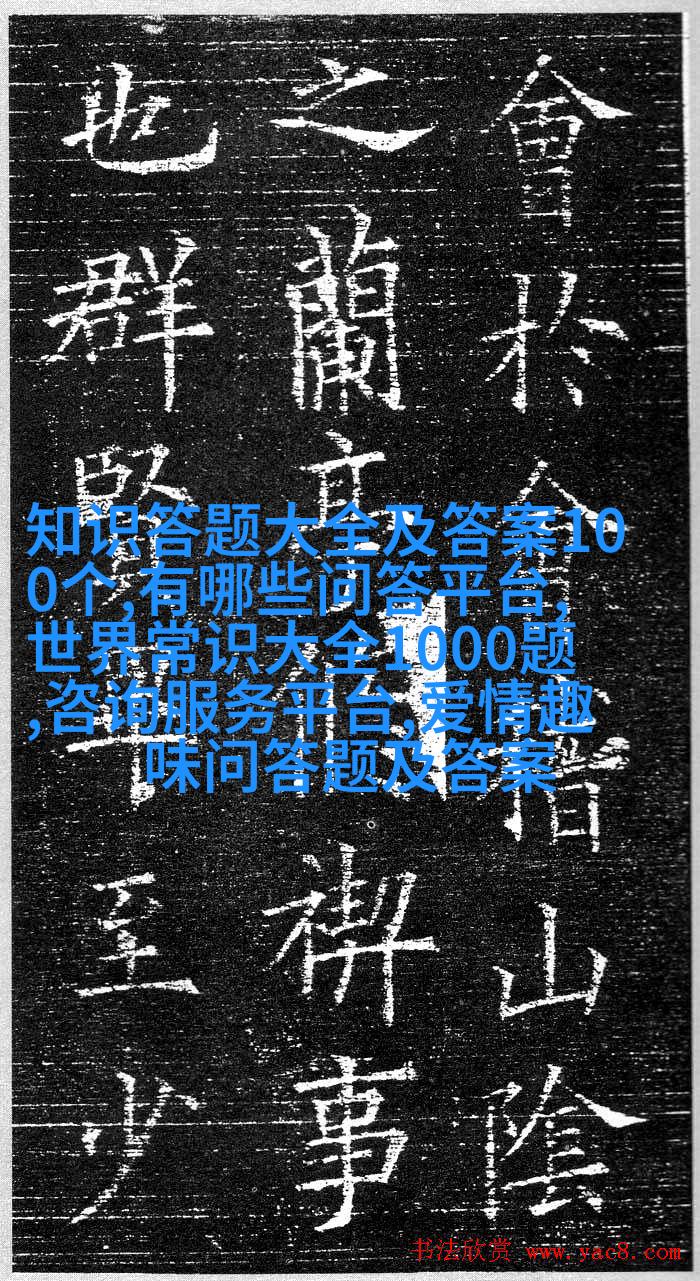 會於會稽山陰
之蘭亭禊事
也群賢畢至少
知识答题大全及答案10
0个,有哪些问答平台,
世界常识大全1000题
,咨询服务平台,爱情趣
味问答题及答案
书法欣赏 www.yac8.com